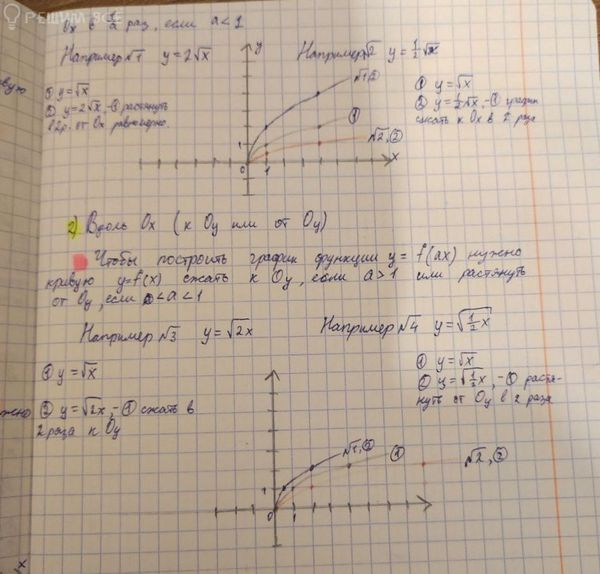 РЕШИМ ВСЕ
Ox в 1/a раз, если a < 1
Например №1 y = 2√x
Например №2 y = 1/2 √x
① y = √x
② y = 2√x, - ① растянуть
в 2р. от Ox равномерно
y
№1, ②
①
№2, ②
1
0
1
x
① y = √x
② y = 1/2 √x, - ① график
сжать к Ox в 2 раза
2) Вдоль Ox (к Oy или от Oy)
Чтобы построить график функции y = f(ax) нужно
кривую y = f(x) сжать к Oy, если a > 1 или растянуть
от Oy, если 0 < a < 1
Например №3 y = √2x
Например №4 y = √(1/2 x)
① y = √x
② y = √2x, - ① сжать в
2 раза к Oy
① y = √x
② y = √(1/2 x), - ① растя-
нуть от Oy в 2 раза
№1, ②
①
№2, ②
1
0
1
x